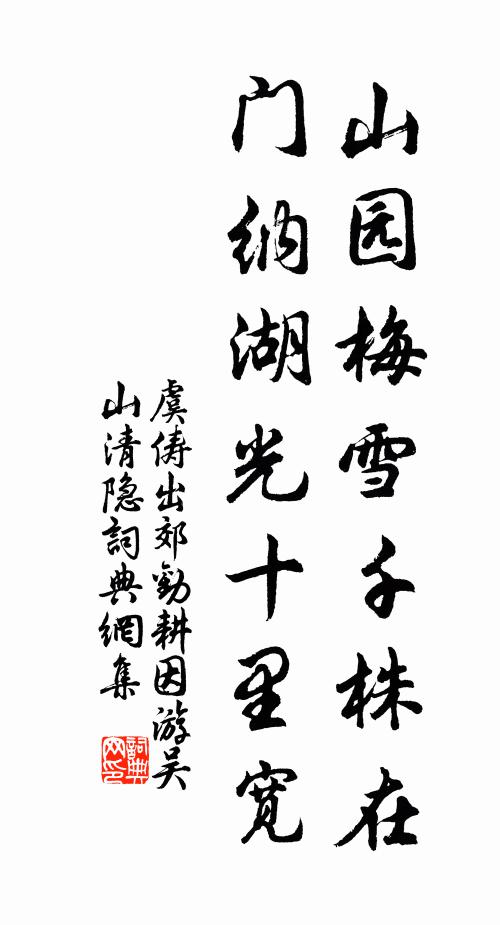 山园梅雪千株在
门纳湖光十里宽
虞俦出郊劝耕因游吴
山清隐詞典網集
詞典
网印